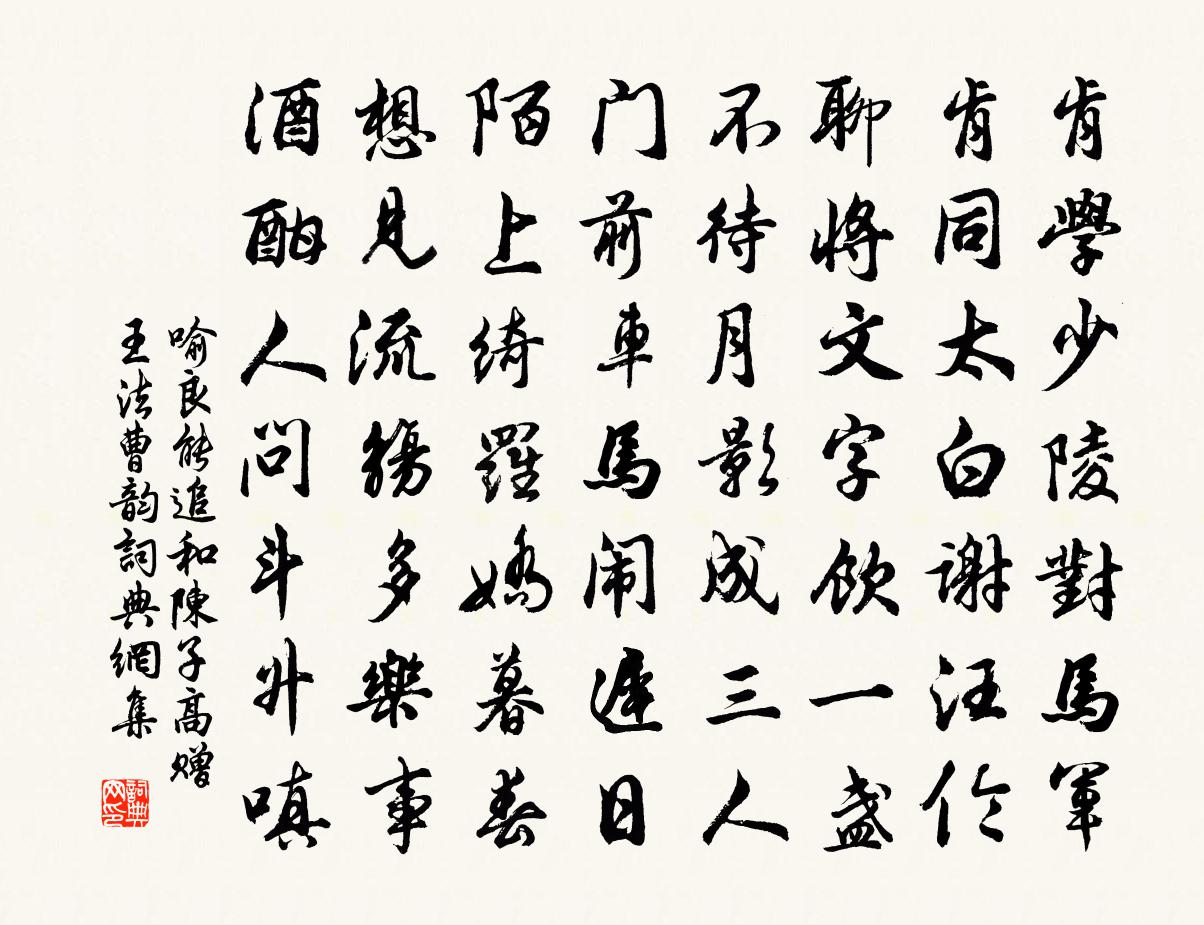 肯學少陵對馬軍
肯同太白謝汪伦
聊將文字飲一盏
不待月影成三人
门前車馬闹遲日
陌上绮羅嬌暮春
想見流觴多樂事
酒酣人問斗升嗔
喻良能追和陳子高赠
王法曹韵詞典網集
詞典
网印